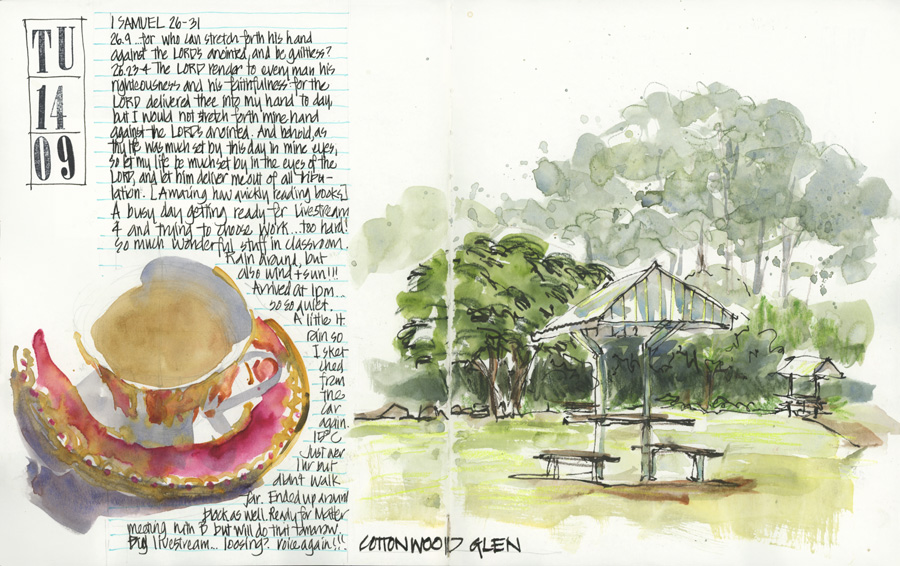 TU
14
09
1 SAMUEL 26-31
26.9...for who can stretch forth his hand
against the LORDS anointed, and be guiltless?
26.23-4 The LORD render to every man his
righteousness and his faithfulness for the
LORD delivered thee into my hand to day,
but I would not stretch forth mine hand
against the LORDS anointed. And behold, as
thy life was much set by this day in mine eyes,
so let my life be much set by in the eyes of the
LORD, and let him deliver me out of all tribu-
lation. [Amazing how quickly reading books]
A busy day getting ready for Livestream
4 and trying to choose work...too hard!
So much wonderful stuff in classroom.
Rain around, but
also wind + sun!!!
Arrived at 1pm...
so so quiet.
A little lt.
rain so
I sket
ched
from
the
car
again.
15°C
Just over
1hr but
didn't walk
far. Ended up around
back as well. Ready for Matter
meeting with B but will do that tomorrow.
Big livestream... loosing? voice again!!!
COTTONWOOD GLEN